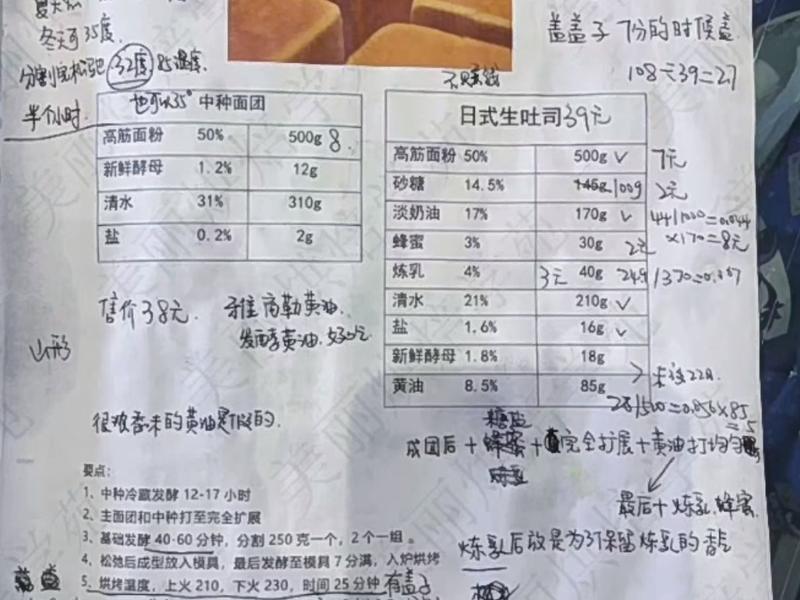 冬天 35度
盖盖子 7份的时候盖
分割完松弛 32度 85湿度
108÷39=27
半个小时
也可以35° 中种面团
高筋面粉 50% 500g 8
新鲜酵母 1.2% 12g
清水 31% 310g
盐 0.2% 2g
日式生吐司 39元
高筋面粉 50% 500g 7元
砂糖 14.5% 145g 100g 2元
淡奶油 17% 170g 44/1000=0.044
×170=8元
蜂蜜 3% 30g 2元
炼乳 4% 3元 40g
清水 21% 210g
盐 1.6% 16g
新鲜酵母 1.8% 18g
黄油 8.5% 85g
28/500=0.056×85
=5
售价38元
黄油
发酵黄油
山形
很难香味的黄油是假的.
糖盐
成团后+蜂蜜+完全扩展+黄油打均匀
炼乳
最后+炼乳.蜂蜜.
炼乳后放是为了保留炼乳的香气
要点:
1、中种冷藏发酵 12-17 小时
2、主面团和中种打至完全扩展
3、基础发酵 40-60 分钟，分割 250 克一个，2 个一组 。
4、松弛后成型放入模具，最后发酵至模具 7 分满，入炉烘烤
5、烘烤温度，上火 210，下火 230，时间 25 分钟 有盖子